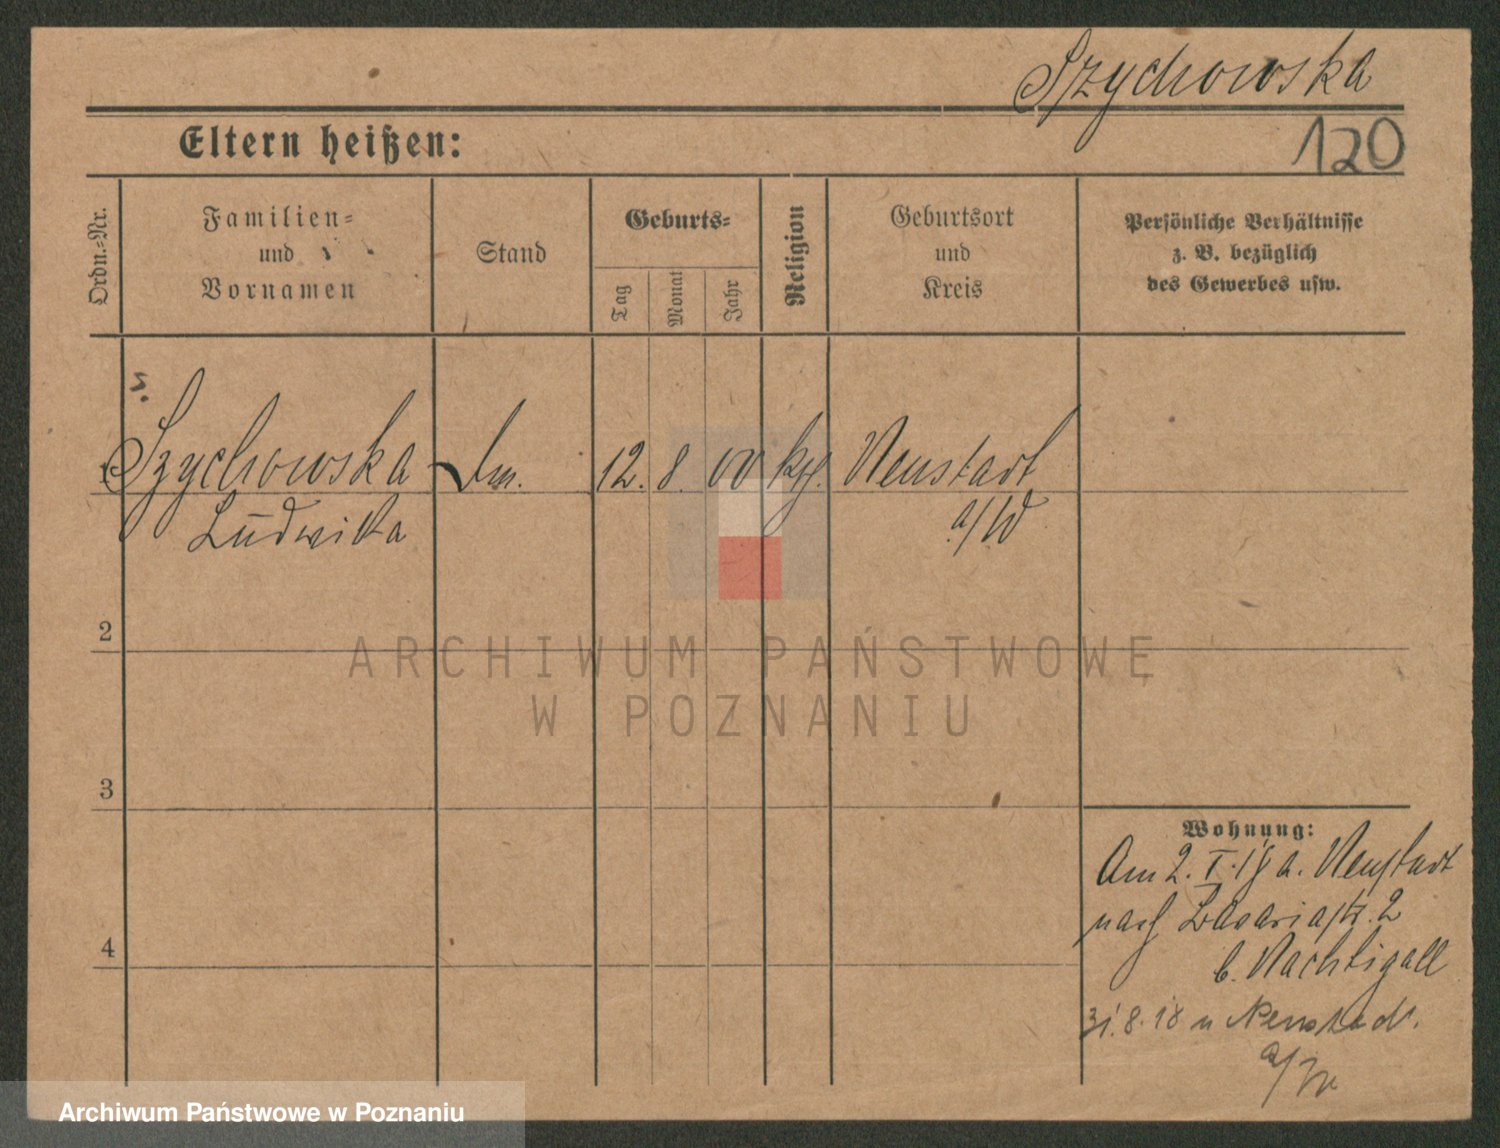 Szychowska
Eltern heißen:
120
Ordn.-Nr.
Familien-
und
Vornamen
Stand
Geburts-
Tag
Monat
Jahr
Religion
Geburtsort
und
Kreis
Persönliche Verhältnisse
z. B. bezüglich
des Gewerbes usw.
1 Szychowska 12. 8. 00 kth. Neustadt
Ludwika a/W
2
ARCHIWUM PAŃSTWOWE
W POZNANIU
3
Wohnung:
Am 2. I. 18 a. Neustadt
nach 2
b. Nachtigall
4
31.8.18 n Neustadt.
a/W
Archiwum Państwowe w Poznaniu